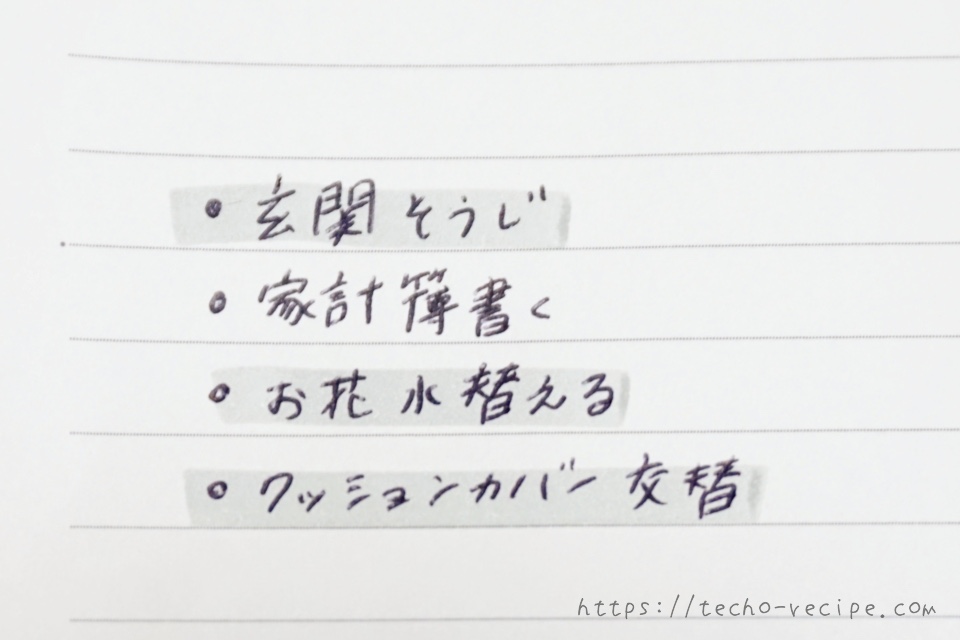 • 玄関 そうじ
• 家計簿書く
• お花 水 替える
• クッションカバー 交替
https://techo-recipe.com